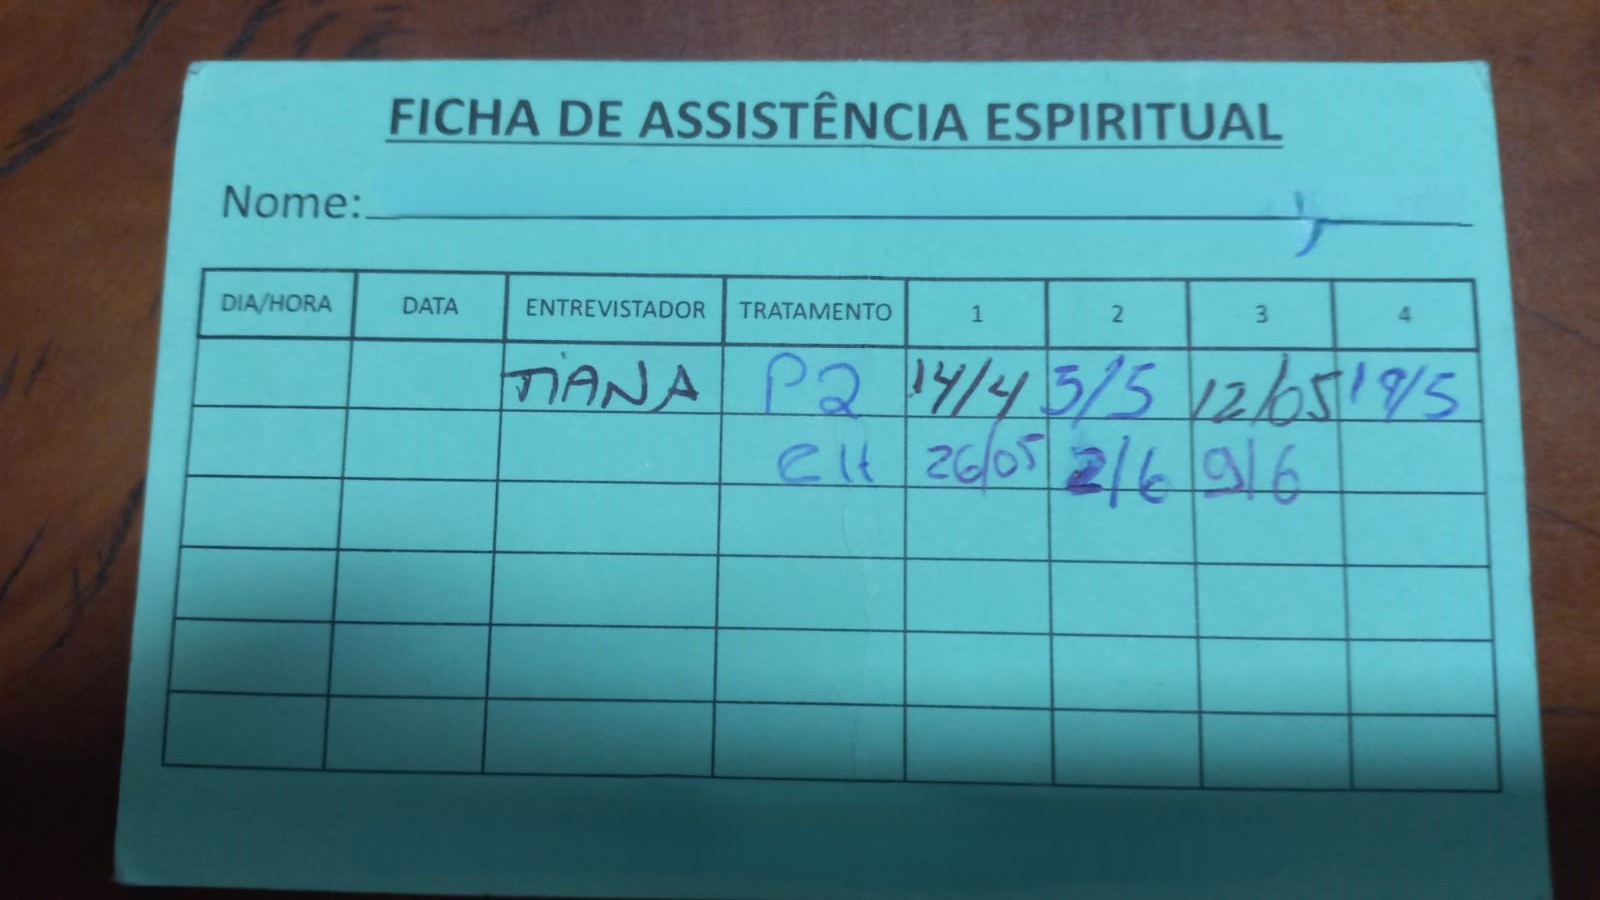 FICHA DE ASSISTÊNCIA ESPIRITUAL
Nome:
DIA/HORA DATA ENTREVISTADOR TRATAMENTO 1 2 3 4
TIANA P2 14/4 5/5 12/05 19/5
26/05 2/6 9/6